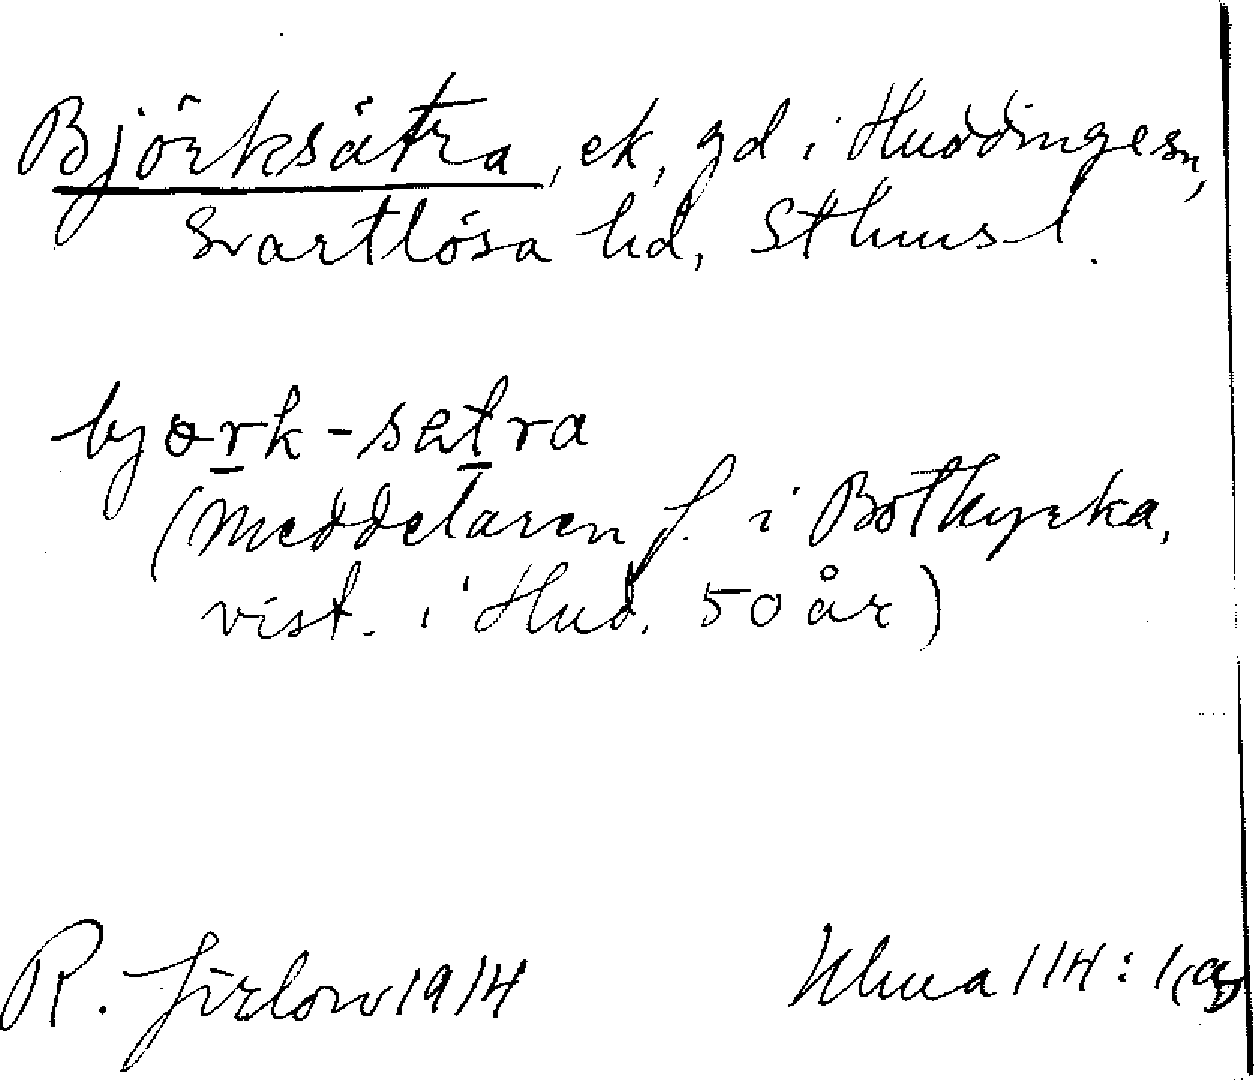 Björksätra, ek, gd i Huddinge sn,
Svartlösa hd, Sthms l.
bjørk-sætra
(Meddelaren f. i Botkyrka,
vist. i Hud. 50 år)
R. Jirlow 1914
114:1(a)